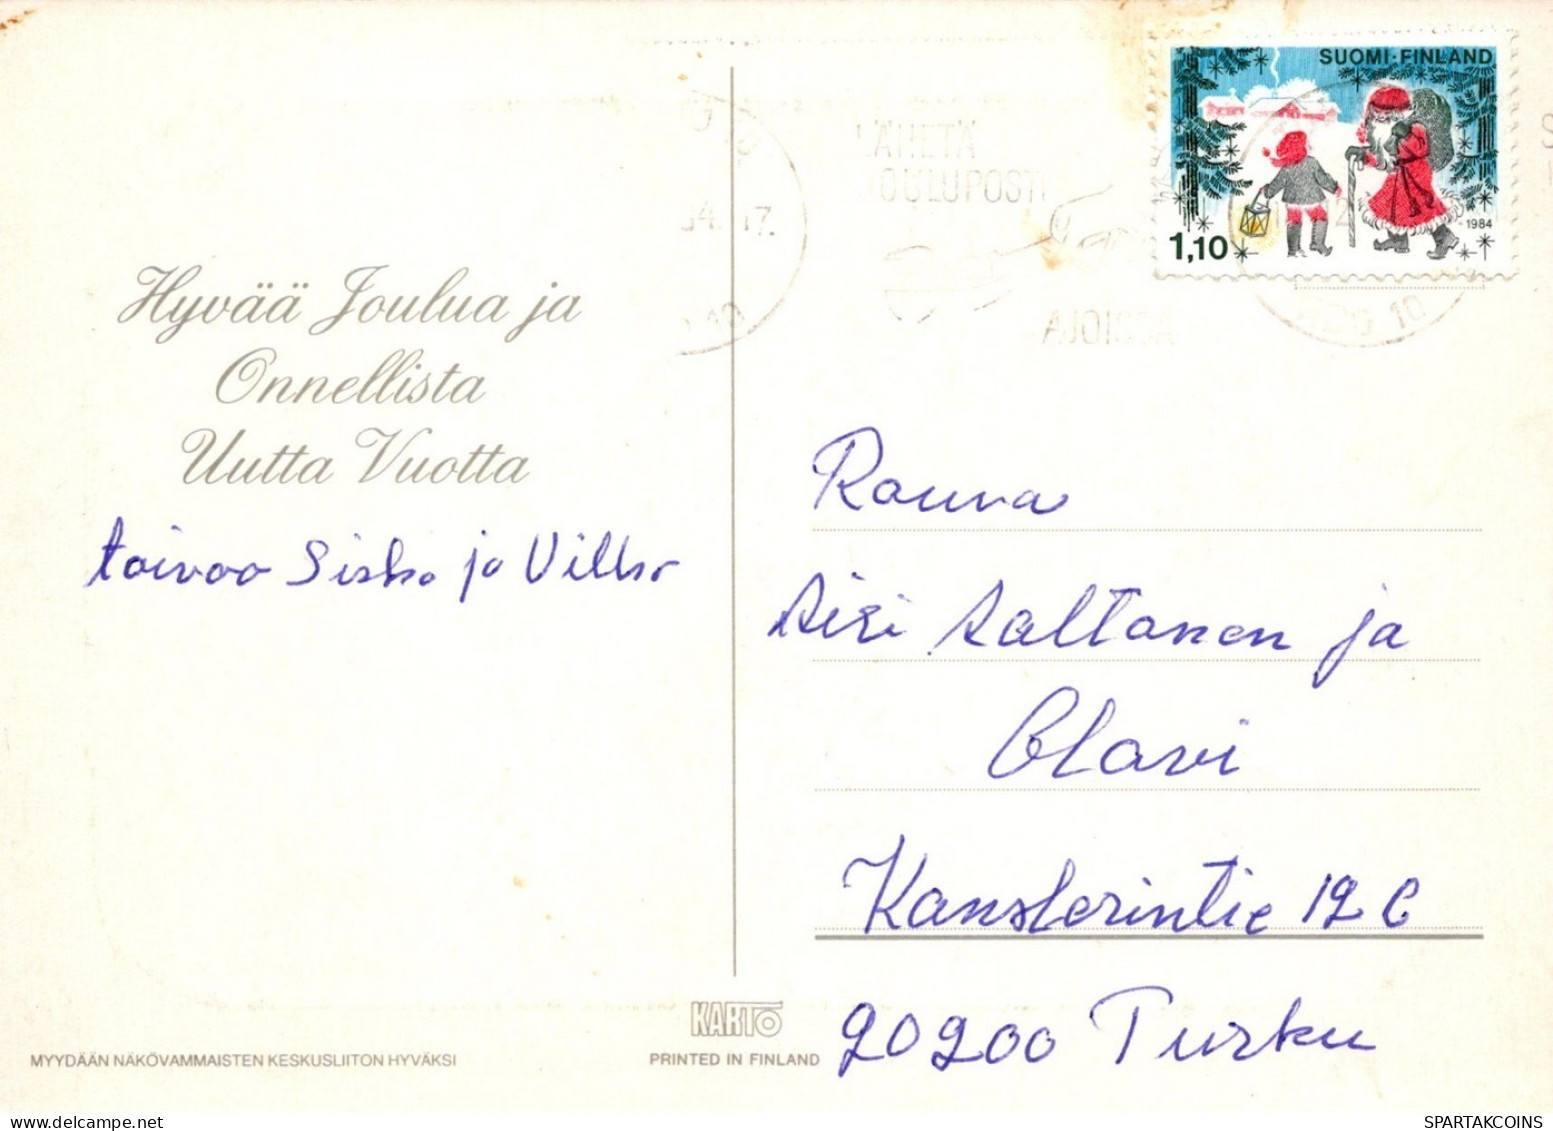 SUOMI·FINLAND
1984
1,10
LÄHETÄ
JOULUPOSTI
AJOISSA
84.-17.
10
10
Hyvää Joulua ja
Onnellista
Uutta Vuotta
toivoo Sisko ja Vilho
Rouva
Siri Saltanen ja
Olavi
Kanslerintie 12 C
20200 Turku
KARTO
MYYDÄÄN NÄKÖVAMMAISTEN KESKUSLIITON HYVÄKSI
PRINTED IN FINLAND
SPARTAKCOINS